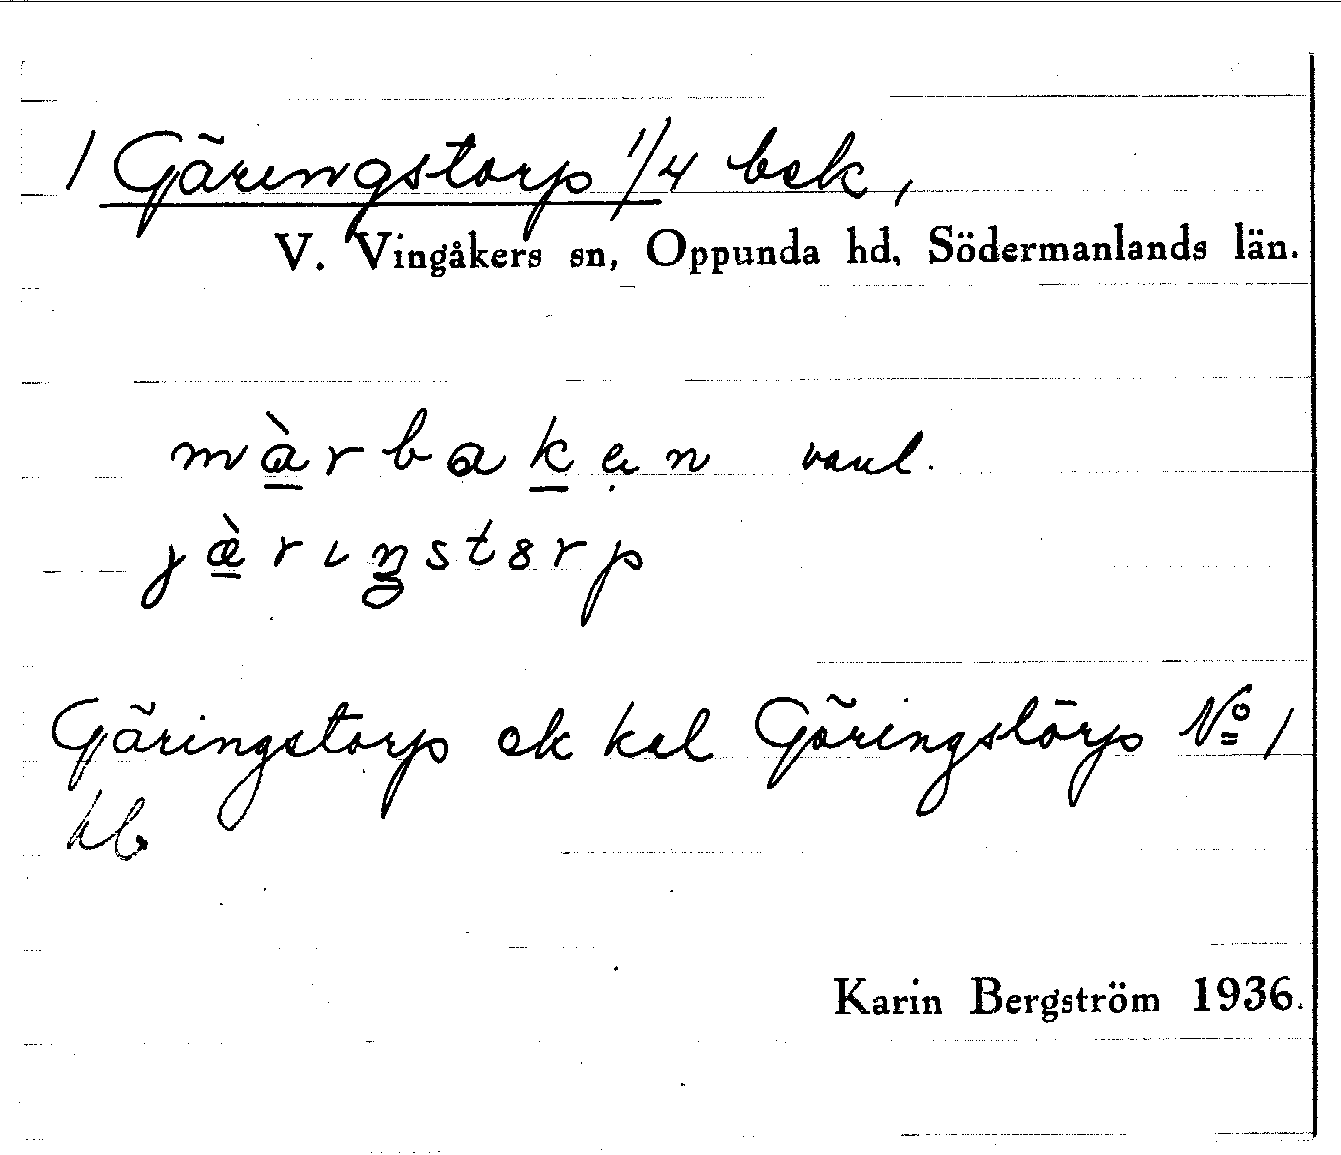 1 Gäringstorp 1/4 bsk,
V. Vingåkers sn, Oppunda hd, Södermanlands län.
mɑ̀rbakẹn vanl.
jæ̀rıŋstɞrp
Gäringstorp ek kal Göringstörp Nº 1
hb
Karin Bergström 1936.